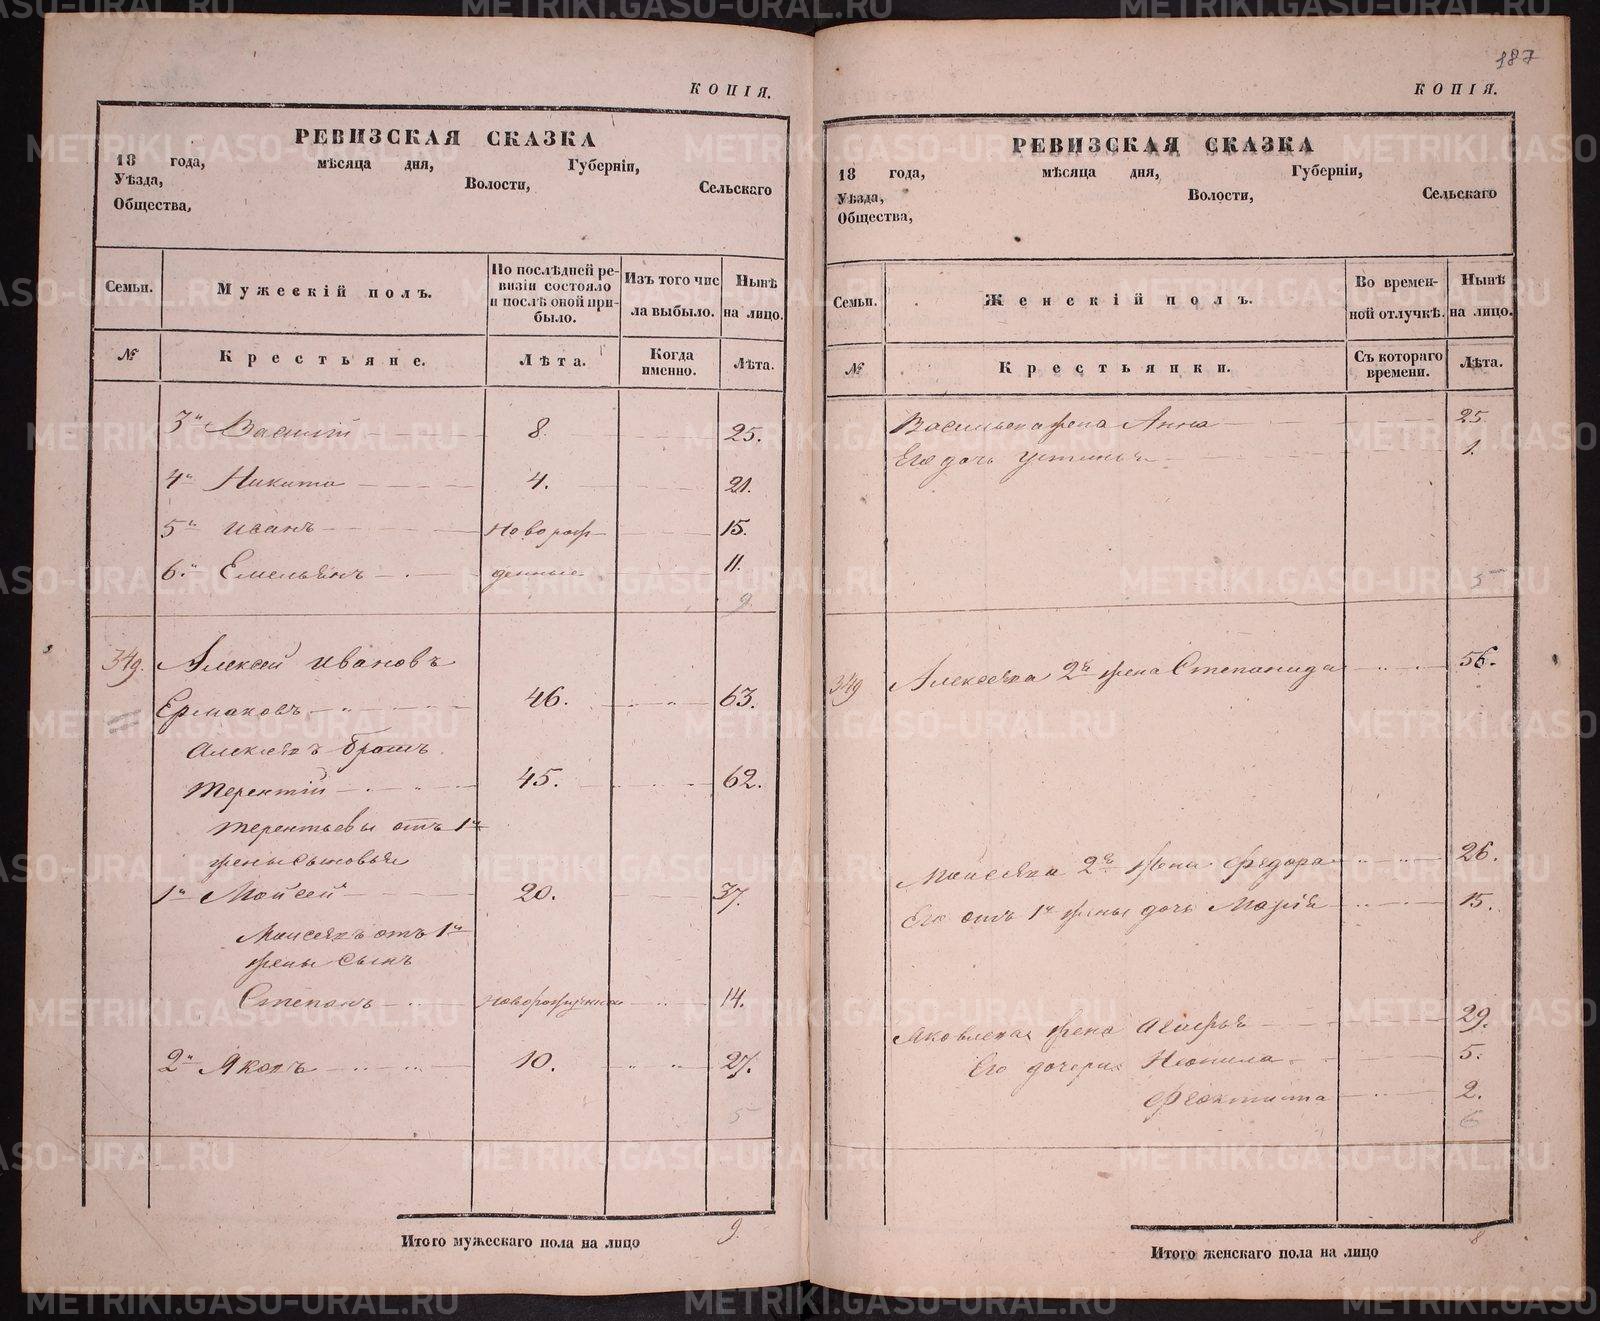 187
КОПІЯ.
РЕВИЗСКАЯ СКАЗКА
18 года, мѣсяца дня, Губерніи,
Уѣзда, Волости, Сельскаго
Общества,
Семьи. Мужескій полъ. По послѣдней ревизіи состояло и послѣ оной прибыло. Изъ того числа выбыло. Нынѣ на лицо.
№ Крестьяне. Лѣта. Когда именно. Лѣта.
3й Василій 8. 25.
4й Никита 4. 21.
5й Иванъ Новорож- 15.
6й Емельянъ денные 11.
9
349. Алексей Ивановъ
Ермаковъ 46. 63.
Алексѣя братъ
Терентій 45. 62.
Терентьевы отъ 1й
жены сыновья
1й Мойсей 20. 37.
Моисея отъ 1й
жены сынъ
Степанъ новорожденный 14.
2й Яковъ 10. 27.
5
Итого мужескаго пола на лицо 9.
КОПІЯ.
РЕВИЗСКАЯ СКАЗКА
18 года, мѣсяца дня, Губерніи,
Уѣзда, Волости, Сельскаго
Общества,
Семьи. Женскій полъ. Во временной отлучкѣ. Нынѣ на лицо.
№ Крестьянки. Съ котораго времени. Лѣта.
Васильева жена Анна 25.
Его дочь Устинья 1.
5
349 Алексѣева 2я жена Степанида 56.
Моисѣева 2я жена Федора 26.
Его отъ 1й жены дочь Марія 15.
Яковлева жена Агафья 29.
Его дочери Неонила 5.
Феоктиста 2.
6
Итого женскаго пола на лицо 8
METRIKI.GASO-URAL.RU